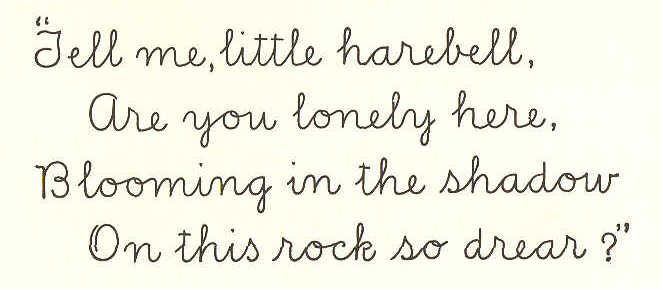 "Tell me, little harebell,
Are you lonely here,
Blooming in the shadow
On this rock so drear?"